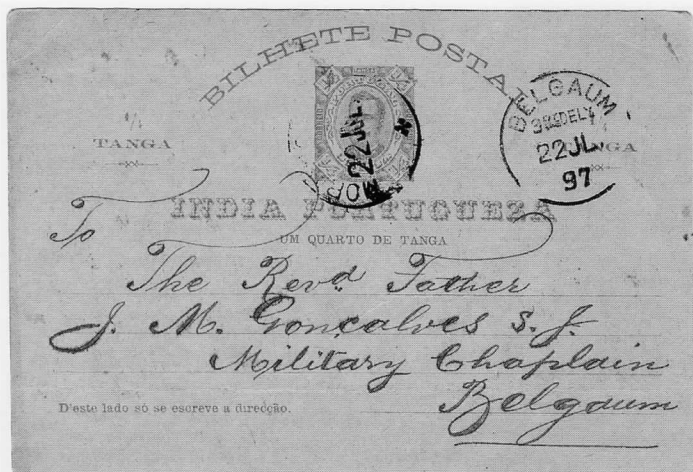 BILHETE POSTAL
1/4 1/4
TANGA TANGA
22 JUL.
BELGAUM
3RD DELY
22 JL.
97
INDIA PORTUGUEZA
UM QUARTO DE TANGA
To
The Revd. Father
J. M. Gonçalves S. J.
Military Chaplain
Belgaum
D'este lado só se escreve a direcção.